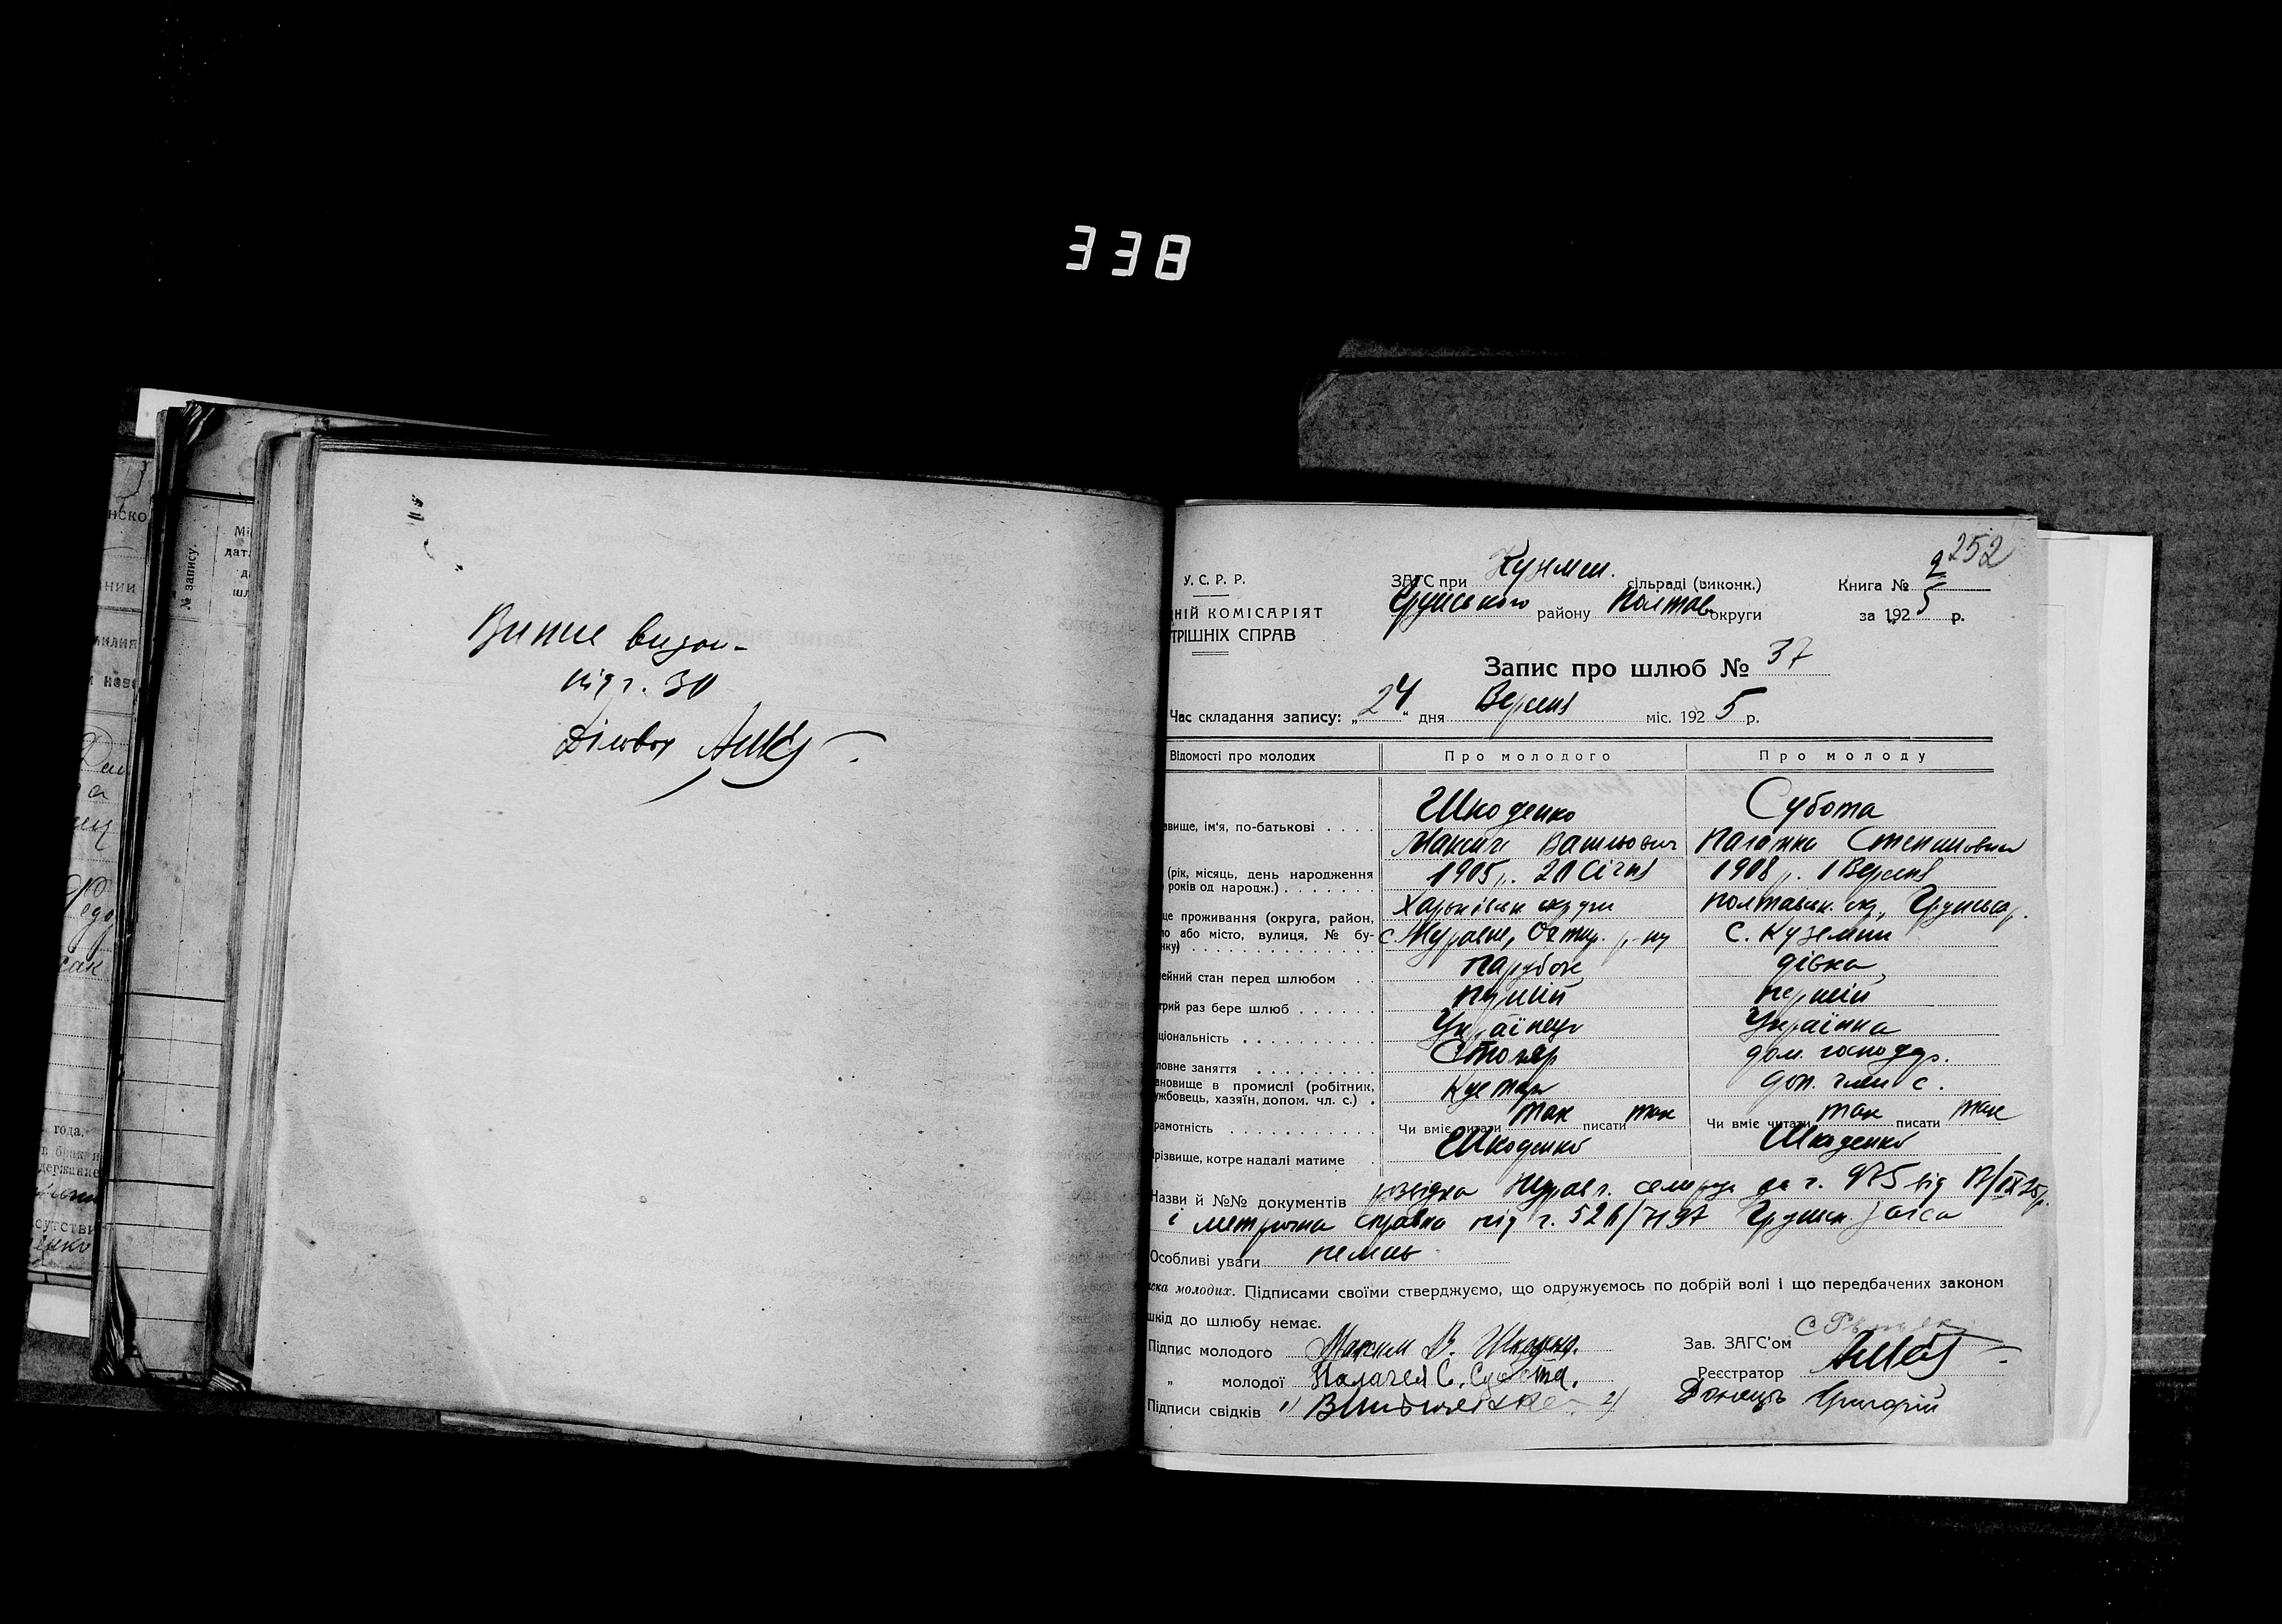 338
Випис видан-
під ч. 30
Діловод
№ запису.
252
У. С. Р. Р.
ЗАГС при Куземин. сільраді (виконк.)
Книга № 2
НІЙ КОМІСАРІЯТ
Грунського району Полтав. округи
за 1925 р.
ТРІШНІХ СПРАВ
Запис про шлюб № 37
Час складання запису: „24“ дня Вересня міс. 1925 р.
Відомості про молодих
Про молодого
Про молоду
звище, ім'я, по-батькові . . . .
Шкоденко
Субота
Максим Васильович
Степановна
(рік, місяць, день народження
років од народж.) . . . . . . .
1905 р. 20 Січня
1908 р. 1 Вересня
це проживання (округа, район,
ло або місто, вулиця, № бу-
нку) . . . . . . . . . . . . . .
Харьківськ. округи
Полтавськ. окр, Грунськ р.
с. Охтир. р-ну
с. Куземин
ейний стан перед шлюбом . .
парубок
дівка
трий раз бере шлюб . . . . . .
перший
перший
ціональність . . . . . . . . . .
Українець
Українка
ловне заняття . . . . . . . . .
Столяр
дом. господар.
ановище в промислі (робітник,
ужбовець, хазяїн, допом. чл. с.) .
Кустар
доп. член с.
рамотність . . . . . . . . . . .
Чи вміє читати так писати так
Чи вміє читати так писати так
різвище, котре надалі матиме .
Шкоденко
Шкоденко
Назви й №№ документів за ч. 975 від 17/IX 25 р.
і метрична справка під ч. 526/7197 Грунськ. загса
Особливі уваги немає
ска молодих. Підписами своїми стверджуємо, що одружуємось по добрій волі і що передбачених законом
шкід до шлюбу немає.
Підпис молодого Максим В. Шкоденко.
Зав. ЗАГС'ом
„ молодої Палагея С. Субота.
Реєстратор
Підписи свідків 1) 2) Донець Григорій